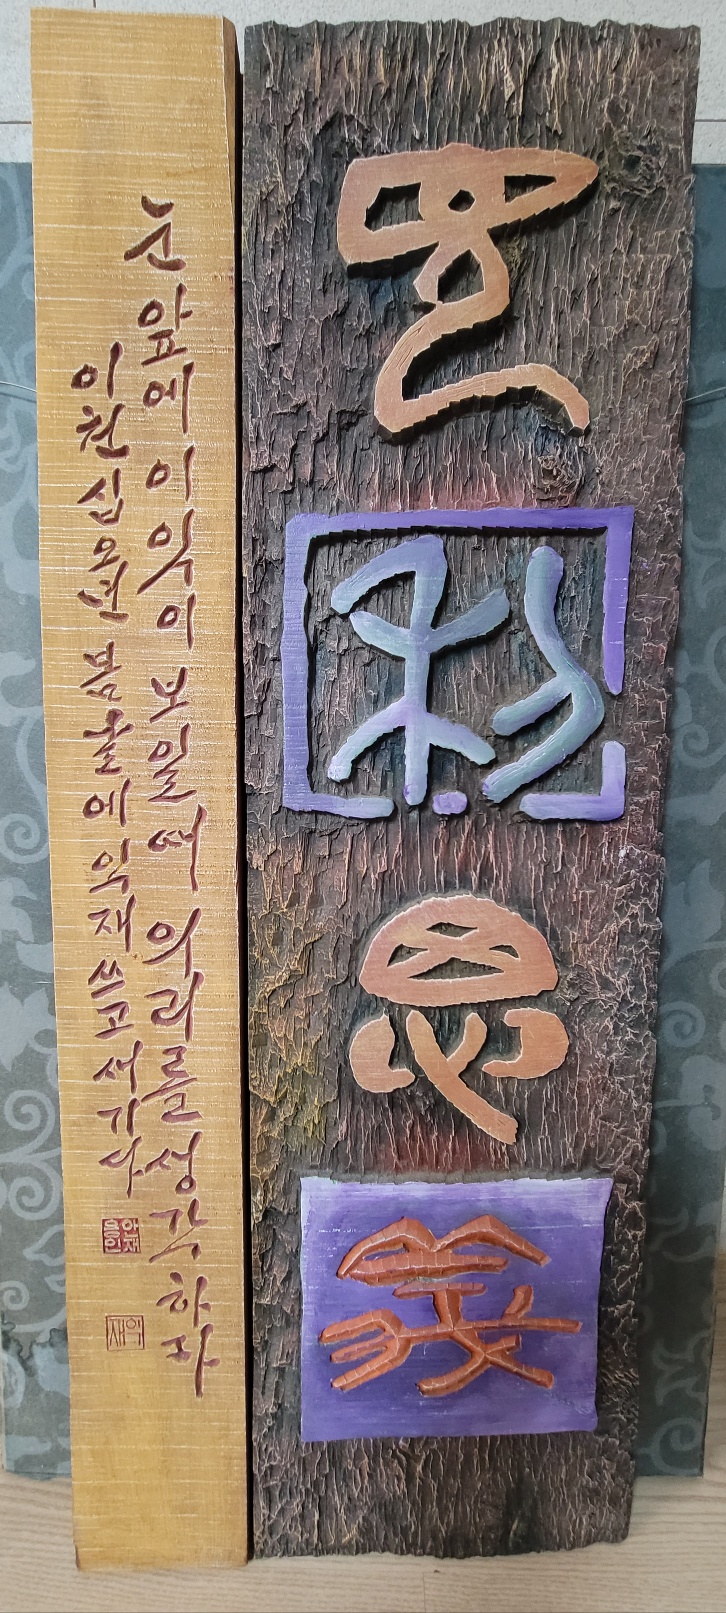 見利思義
눈 앞에 이익이 보일 때 의리를 생각하라
이천십오년 봄날에 익재 쓰고 새기다
익재